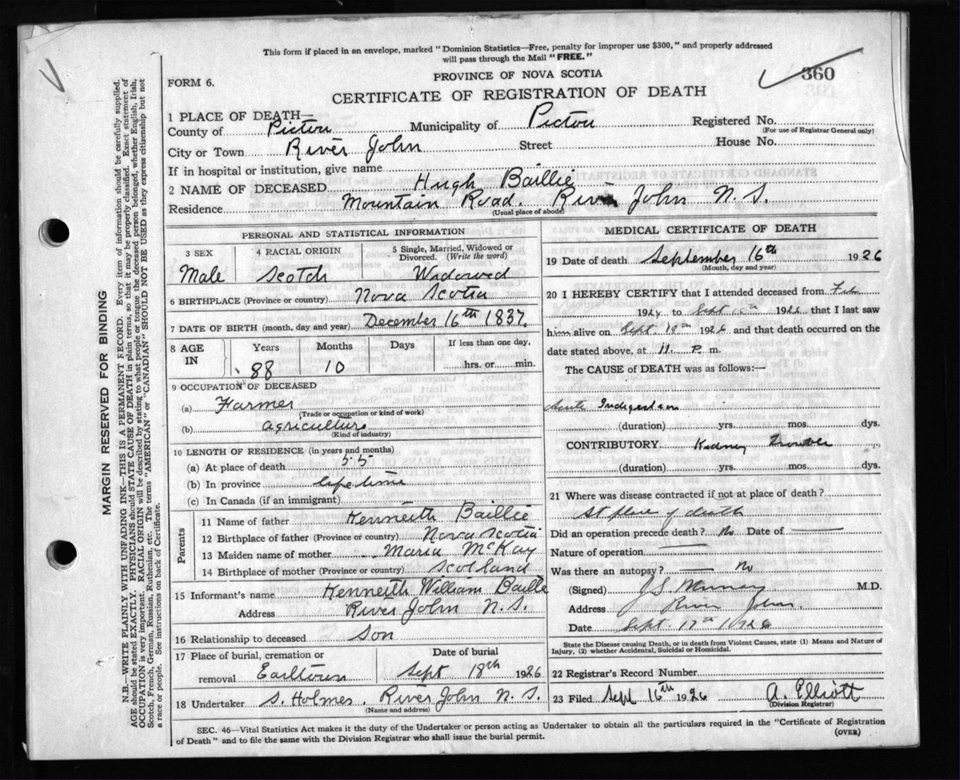 This form if placed in an envelope, marked "Dominion Statistics—Free, penalty for improper use $300," and properly addressed
will pass through the Mail "FREE."
PROVINCE OF NOVA SCOTIA
360
FORM 6.
CERTIFICATE OF REGISTRATION OF DEATH
1 PLACE OF DEATH—
County of Pictou Municipality of Pictou Registered No.
(For use of Registrar General only)
City or Town River John Street House No.
If in hospital or institution, give name
2 NAME OF DECEASED Hugh Baillie
Residence Mountain Road. River John N. S.
(Usual place of abode)
PERSONAL AND STATISTICAL INFORMATION
3 SEX 4 RACIAL ORIGIN 5 Single, Married, Widowed or Divorced. (Write the word)
Male Scotch Widowed
6 BIRTHPLACE (Province or country) Nova Scotia
7 DATE OF BIRTH (month, day and year) December 16th 1837.
8 AGE IN Years Months Days If less than one day,
88 10 hrs. or min.
9 OCCUPATION OF DECEASED
(a) Farmer
(Trade or occupation or kind of work)
(b) Agriculture
(Kind of industry)
10 LENGTH OF RESIDENCE (in years and months)
(a) At place of death 55
(b) In province life time
(c) In Canada (if an immigrant)
Parents
11 Name of father Kenneith Baillie
12 Birthplace of father (Province or country) Nova Scotia
13 Maiden name of mother Maria McKay
14 Birthplace of mother (Province or country) Scotland
15 Informant's name Kenneith William Baillie
Address River John N. S.
16 Relationship to deceased Son
17 Place of burial, cremation or removal Date of burial
Earltown Sept 18th 1926
18 Undertaker S. Holmes River John N. S.
(Name and address)
MEDICAL CERTIFICATE OF DEATH
19 Date of death September 16th 1926
(Month, day and year)
20 I HEREBY CERTIFY that I attended deceased from Feb
192 to Sept 1926 that I last saw
him alive on Sept 1926 and that death occurred on the
date stated above, at 11 P. m.
The CAUSE of DEATH was as follows:—
Acute Indigestion
(duration) yrs. mos. dys.
CONTRIBUTORY Kidney Trouble
(duration) yrs. mos. dys.
21 Where was disease contracted if not at place of death?
At place of death
Did an operation precede death? No Date of
Nature of operation
Was there an autopsy? No
(Signed) M.D.
Address River John
Date Sept 17th 1926
State the Disease causing Death, or in death from Violent Causes, state (1) Means and Nature of
Injury, (2) whether Accidental, Suicidal or Homicidal.
22 Registrar's Record Number
23 Filed Sept 16th 1926 A. Elliott
(Division Registrar)
SEC. 46—Vital Statistics Act makes it the duty of the Undertaker or person acting as Undertaker to obtain all the particulars required in the "Certificate of Registration
of Death" and to file the same with the Division Registrar who shall issue the burial permit.
(OVER)
MARGIN RESERVED FOR BINDING
N.B.—WRITE PLAINLY WITH UNFADING INK—THIS IS A PERMANENT RECORD. Every item of information should be carefully supplied.
AGE should be stated EXACTLY. PHYSICIANS should STATE CAUSE OF DEATH in plain terms, so that it may be properly classified. Exact statement of
OCCUPATION is very important. RACIAL ORIGIN will be described by stating to what people or tongue the deceased person belonged, whether English, Irish,
Scotch, French, German, Russian, Ruthenian, etc. The terms "AMERICAN" or "CANADIAN" SHOULD NOT BE USED as they express citizenship but not
a race or people. See instructions on back of Certificate.